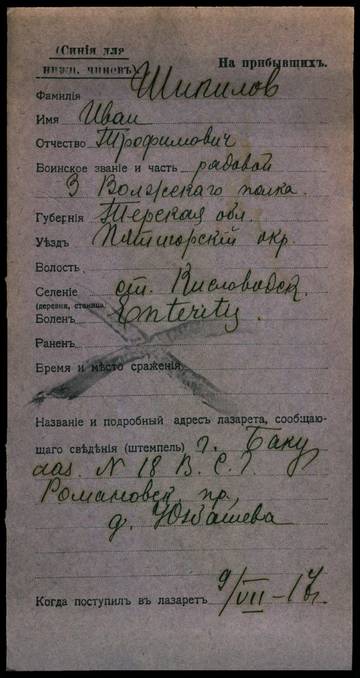 (Синія для
нижн. чиновъ).
На прибывшихъ.
Фамилія Шипилов
Имя Иван
Отчество Трофимович
Воинское званіе и часть рядовой
3 Волжскаго полка.
Губернія Терская обл.
Уѣздъ Пятигорскій окр.
Волость
Селеніе ст. Кисловодск.
(деревня, станица)
Боленъ Enteritis.
Раненъ
Время и мѣсто сраженія
Названіе и подробный адресъ лазарета, сообщаю-
щаго свѣдѣнія (штемпель) г. Баку
лаз. N 18 В. С. Г.
Романовск. пр.,
д. Юзбашева
Когда поступилъ въ лазаретъ 9/VII-17г.